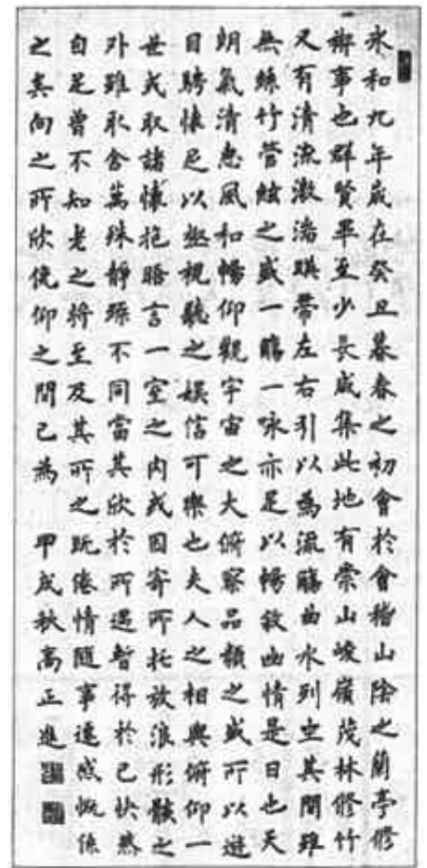 永和九年歲在癸丑暮春之初會於會稽山陰之蘭亭修
禊事也群賢畢至少長咸集此地有崇山峻嶺茂林修竹
又有清流激湍暎帶左右引以為流觴曲水列坐其間雖
無絲竹管絃之盛一觴一咏亦足以暢敘幽情是日也天
朗氣清惠風和暢仰觀宇宙之大俯察品類之盛所以遊
目騁懷足以極視聽之娛信可樂也夫人之相與俯仰一
世或取諸懷抱晤言一室之內或因寄所托放浪形骸之
外雖取舍萬殊靜躁不同當其欣於所遇暫得於己快然
自足曾不知老之將至及其所之既倦情隨事遷感慨係
之矣向之所欣俛仰之間已為 甲戌秋高正進